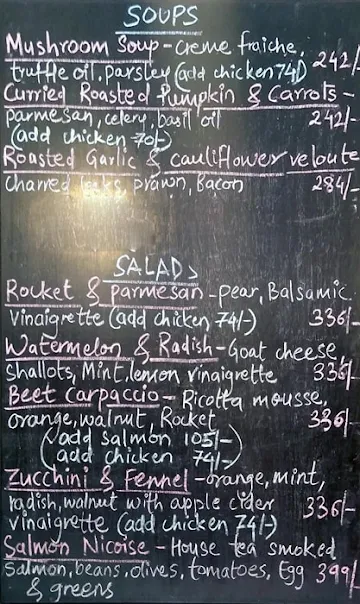 SOUPS
Mushroom Soup - Creme fraiche,
truffle oil, parsley (add chicken 74/) 242/-
Curried Roasted Pumpkin & Carrots -
parmesan, celery, basil oil 242/-
(add chicken 70/-)
Roasted Garlic & cauliflower veloute
charred leeks, prawn, Bacon 284/-
SALADS
Rocket & parmesan - pear, Balsamic
vinaigrette (add chicken 74/-) 336/-
Watermelon & Radish - Goat cheese,
shallots, Mint, lemon vinaigrette 336/-
Beet carpaccio - Ricotta mousse,
orange, walnut, Rocket 336/-
(add salmon 105/-)
(add chicken 74/-)
Zucchini & Fennel - orange, mint,
radish, walnut with apple cider 336/-
vinaigrette (add chicken 74/-)
Salmon Nicoise - House tea smoked
Salmon, beans, olives, tomatoes, Egg 399/-
& greens